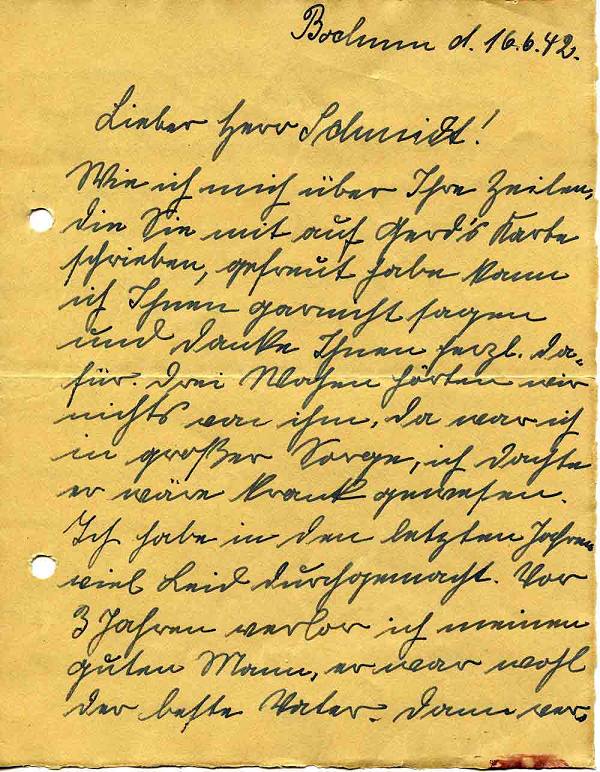 Bochum d. 16.6.42.
Lieber Herr Schmidt!
Wie ich mich über Ihre Zeilen,
die Sie mit auf Gerd's Karte
schrieben, gefreut habe kann
ich Ihnen garnicht sagen
und danke Ihnen herzl. da=
für. Drei Wochen hörten wir
nichts von ihm, da war ich
in großer Sorge, ich dachte
er wäre krank gewesen.
Ich habe in den letzten Jahren
viel Leid durchgemacht. Vor
3 Jahren verlor ich meinen
guten Mann, er war wohl
der beste Vater. Dann ver-